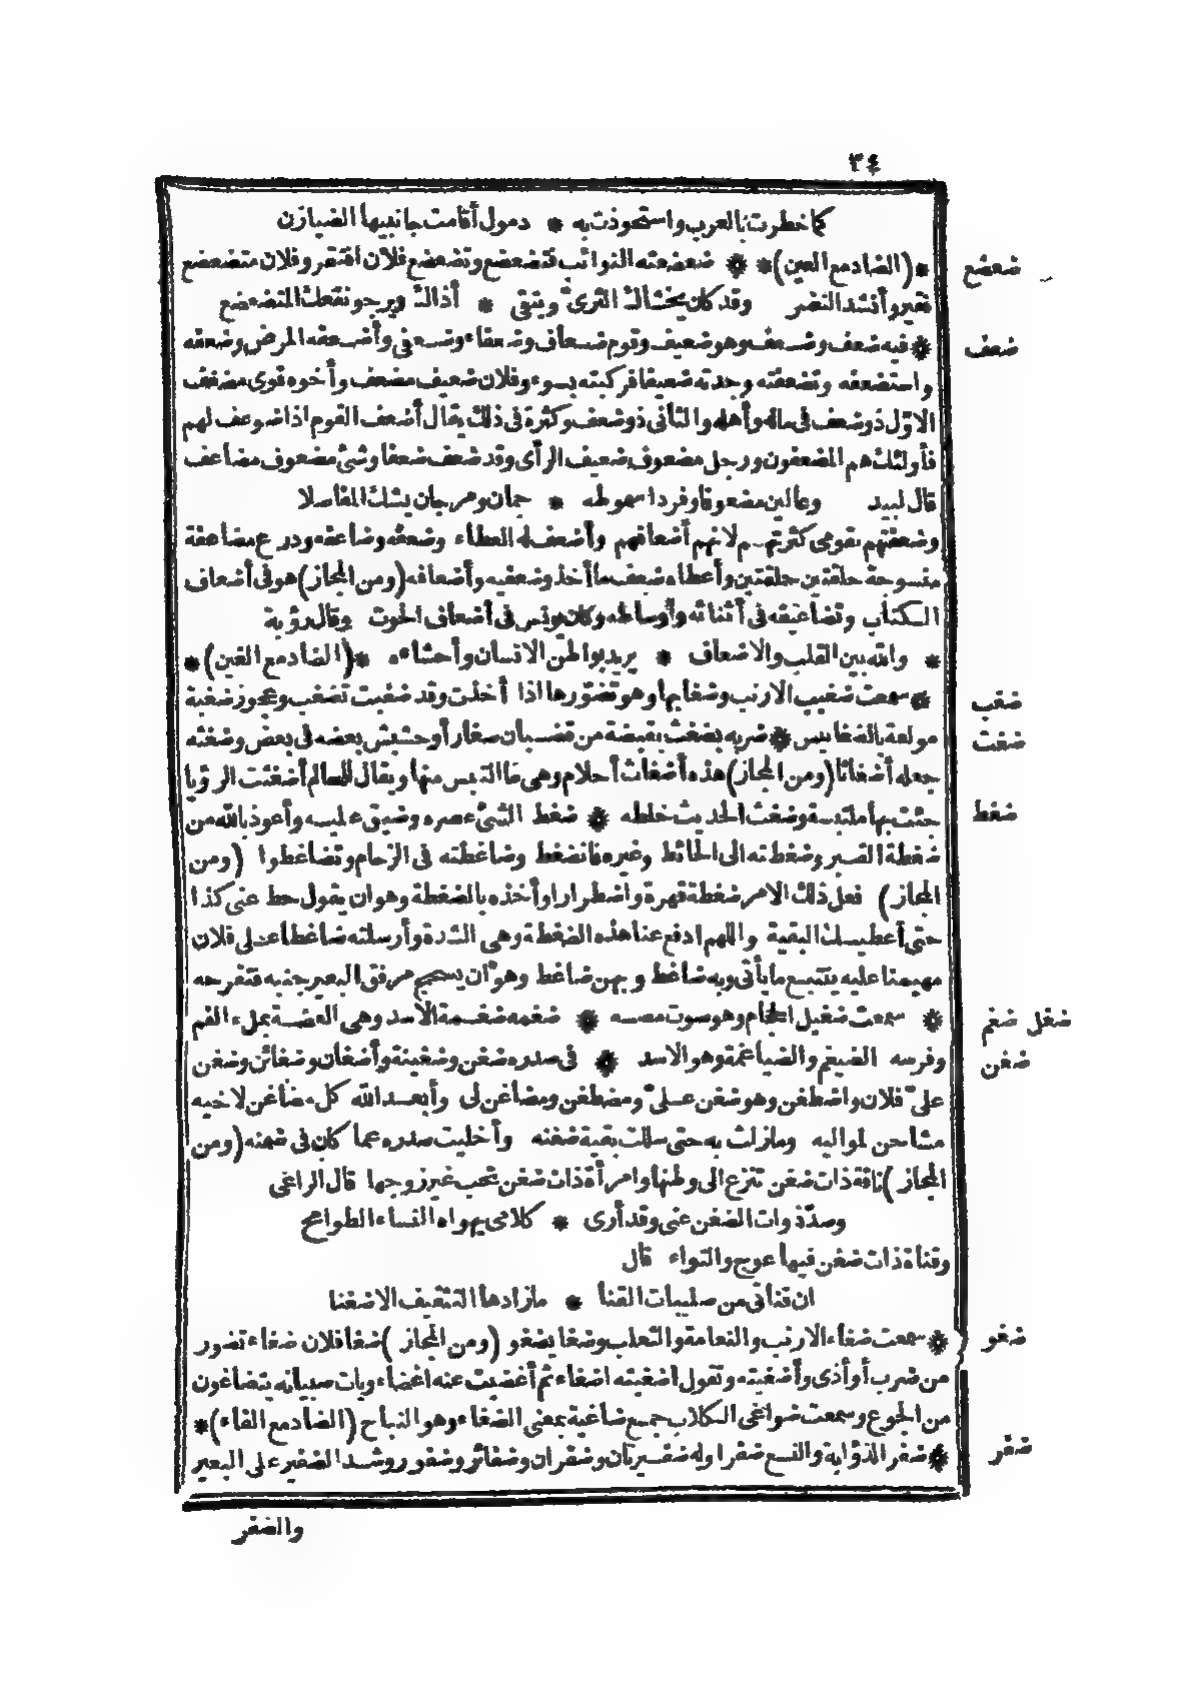 ٣٤
كما خطرت بالعرب واستحوذت به * دمول أقامت جانبيها الضيازن
*(الضاد مع العين)* * ضعضعته النوائب فتضعضع وتضعضع فلان افتقر وفلان متضعضع
ضعضع
فقير وأنشد النضر وقد كان يخشاك الثرى ويتقى * أذاك ويرجو نفعك المتضعضع
* فيه ضعف وضعف وهو ضعيف وقوم ضعاف وضعفاء وضعفى وأضعفه المرض وضعفه
ضعف
واستضعفه وتضعفته وجدته ضعيفا فركبته بسوء وفلان ضعيف مضعف وأخوه قوى مضعف
الاوّل ذو ضعف فى ماله وأهله والثانى ذو ضعف وكثرة فى ذلك يقال أضعف القوم اذا ضوعف لهم
فأولئك هم المضعفون ورجل مضعوف ضعيف الرأى وقد ضعف ضعفا وشئ مضعوف مضاعف
قال لبيد وعالين مضعوفا وفردا سموطه * جمان ومرجان يشك المفاصلا
وضعفتهم بقومى كثرتهم لانهم أضعافهم وأضعف له العطاء وضعفه وضاعفه ودرع مضاعفة
منسوجة حلقتين حلقتين وأعطاه ضعف ما أخذ وضعفيه وأضعافه (ومن المجاز) هو فى أضعاف
الكتاب وتضاعيفه فى أثنائه وأوساطه وكان يونس فى أضعاف الحوت وقال رؤبة
* والله بين القلب والاضعاف * يريد بواطن الانسان وأحشاءه *(الضاد مع الغين)*
* سمعت ضغيب الارنب وضغابها وهو تضوّرها اذا أخذت وقد ضغبت تضغب وعجوز ضغبة
ضغب
مولعة بالضغابيس * ضربه بضغث بقبضة من قضبان صغار أو حشيش بعضه فى بعض وضغثه
ضغث
جعله أضغاثا (ومن المجاز) هذه أضغاث أحلام وهى ما التبس منها ويقال للحالم أضغثت الرؤيا
جئت بها ملتبسة وضغث الحديث خلطه * ضغط الشئ عصره وضيق عليه وأعوذ بالله من
ضغط
ضغطة القبر وضغطته الى الحائط وغيره فانضغط وضاغطته فى الزحام وتضاغطوا (ومن
المجاز) فعل ذلك الامر ضغطة قهرة واضطرارا وأخذه بالضغطة وهو ان يقول حط عنى كذا
حتى أعطيك البقية واللهم ادفع عنا هذه الضغطة وهى الشدة وأرسلته ضاغطا على فلان
مهيمنا عليه يتتبع ما يأتى وبه ضاغط وبهن ضاغط وهو ان يسحج مرفق البعير جنبه فتقرحه
* سمعت ضغيل الحجام وهو صوت مصه * ضغمه ضغمة الاسد وهى العضة بملء الفم
ضغل ضغم
وفرسه الضيغم والضياغمة وهو الاسد * فى صدره ضغن وضغينة وأضغان وضغائن وضغن
ضغن
علىّ فلان واضطغن وهو ضغن علىّ ومضطغن ومضاغن لى وأبعد الله كل مضاغن لاخيه
مشاحن لمواليه ومازلت به حتى سللت بقية ضغنه وأخليت صدره عما كان فى ضمنه (ومن
المجاز) ناقة ذات ضغن تنزع الى وطنها وامرأة ذات ضغن تحب غير زوجها قال الراعى
وصدّ ذوات الضغن عنى وقد أرى * كلامى يهواه النساء الطوامح
وقناة ذات ضغن فيها عوج والتواء قال
ان قناتى من صليبات القنا * مازادها التثقيف الاضغنا
* سمعت ضغاء الارنب والنعامة والثعلب وضغا يضغو (ومن المجاز) ضغا فلان ضغاء تضور
ضغو
من ضرب أو أذى وأضغيته وتقول أضغيته اضغاء ثم أغضيت عنه اغضاء وبات صبيانه يتضاغون
من الجوع وسمعت ضواغى الكلاب جمع ضاغية بمعنى الضغاء وهو النباح (الضاد مع الفاء)*
* ضفر الذؤابة والنسع ضفرا وله ضفيرتان وضفران وضفائر وضفور وشد الضفير على البعير
ضفر
والضفر